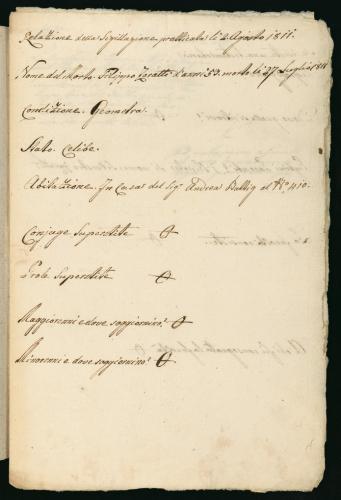 Relazione della Sigillazione pratticata li 4 Agosto 1811.
Nome del Morto. Filippo d'anni 53. morto li 27 Luglio 1811
Condizione. Geometra.
Stato. Celibe.
Abitazione. In Casa del Sigr Andrea al No 410.
Conjuge Superstite O
Prole Superstite O
Maggiorenni e dove soggiornino? O
Minorenni e dove soggiornino? O